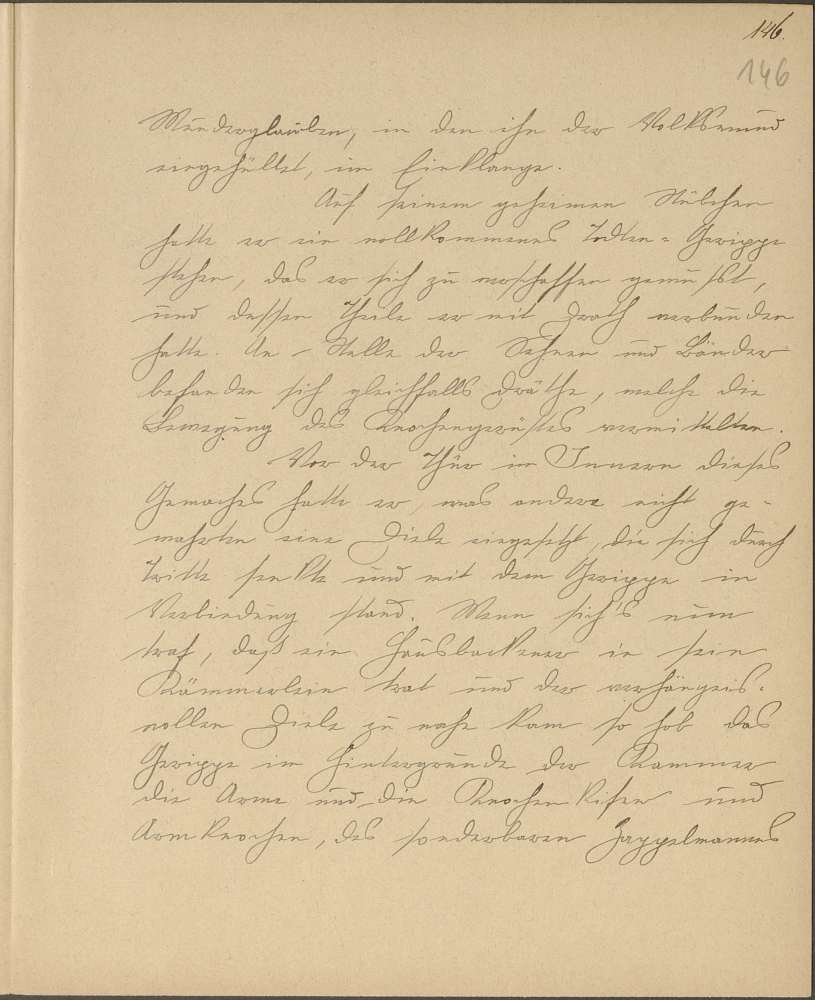 146.
146
Wunderglauben, in den ihn der Volksmund
eingehüllt, im Einklange.
Auf seinem geheimen Stübchen
hatte er ein vollkommenes Todten-Gerippe
stehen, das er sich zu verschaffen gewußt,
und dessen Theile er mit Drath verbunden
hatte. An - Stelle der Sehnen und Bänder
befanden sich gleichfalls Dräthe, welche die
Bewegung des Knochengerüstes vermittelten.
Vor der Thür im Innern dieses
Gemaches hatte er, was andere nicht ge-
wahrten eine Diele eingesetzt, die sich durch
Tritte senkte und mit dem Gerippe in
Verbindung stand. Wenn sich's nun
traf, daß ein Hausbackener in sein
Kämmerlein trat und der verhängnis-
vollen Diele zu nahe kam so hob das
Gerippe im Hintergrunde der Kammer
die Arme und die Knochen
Armknochen, des sonderbaren Zappelmannes